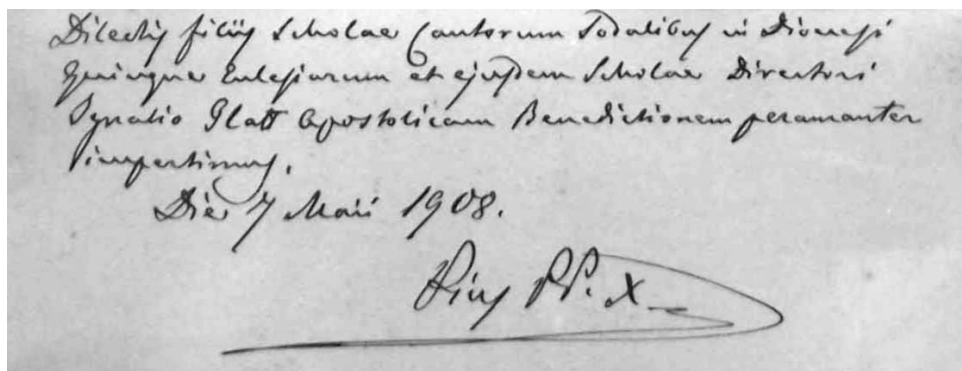 Dilectis filiis Scholae Cantorum Sodalibus in Dioecesi
Quinque Ecclesiarum et ejusdem Scholae Directori
Ignatio Glatt Apostolicam Benedictionem peramanter
impertimus.
Die 7 Maii 1908.
Pius PP. X